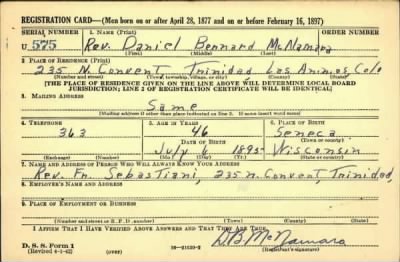 REGISTRATION CARD—(Men born on or after April 28, 1877 and on or before February 16, 1897)
SERIAL NUMBER 1. NAME (Print) ORDER NUMBER
U 575 Rev. Daniel Bernard McNamara
2. PLACE OF RESIDENCE (Print)
235 N. Convent Trinidad Las Animas Colo
(Number and street) (Town, township, village, or city) (County) (State)
[THE PLACE OF RESIDENCE GIVEN ON THE LINE ABOVE WILL DETERMINE LOCAL BOARD
JURISDICTION; LINE 2 OF REGISTRATION CERTIFICATE WILL BE IDENTICAL]
3. MAILING ADDRESS
Same
[Mailing address if other than place indicated on line 2. If same insert word same]
4. TELEPHONE 5. AGE IN YEARS 6. PLACE OF BIRTH
363 46 Seneca
DATE OF BIRTH (Town or county)
July 6 1895 Wisconsin
(Exchange) (Number) (Mo.) (Day) (Yr.) (State or country)
7. NAME AND ADDRESS OF PERSON WHO WILL ALWAYS KNOW YOUR ADDRESS
Rev. Fr. Sebastiani, 235 N. Convent, Trinidad,
8. EMPLOYER'S NAME AND ADDRESS
9. PLACE OF EMPLOYMENT OR BUSINESS
(Number and street or R. F. D. number) (Town) (County) (State)
I AFFIRM THAT I HAVE VERIFIED ABOVE ANSWERS AND THAT THEY ARE TRUE.
D. S. S. Form 1 D.B. McNamara
(Revised 4-1-42) (over) 16—21630-2 (Registrant's signature)